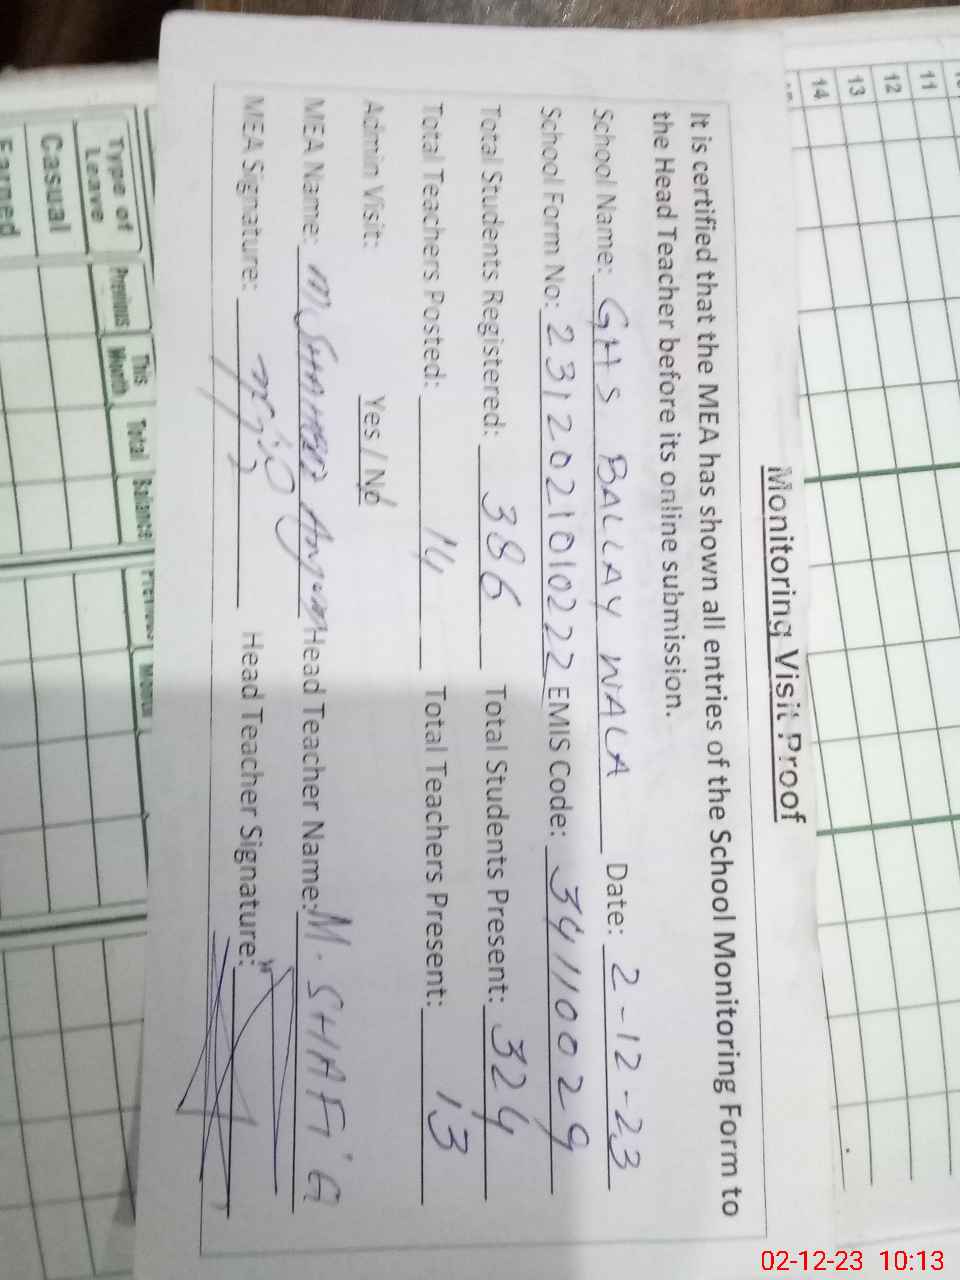 Monitoring Visit Proof
It is certified that the MEA has shown all entries of the School Monitoring Form to
the Head Teacher before its online submission.
School Name: GHS BALLAY WALA Date: 2-12-23
School Form No: 231202101022 2 EMIS Code: 34110029
Total Students Registered: 386 Total Students Present: 324
Total Teachers Posted: 14 Total Teachers Present: 13
Admin Visit: Yes / No
MEA Name: M SHAHID Anjum Head Teacher Name: M. SHAFIG
MEA Signature: Head Teacher Signature:
11
12
13
14
Type of Leave Previous This Month Total Balance
Casual
Earned
02-12-23 10:13